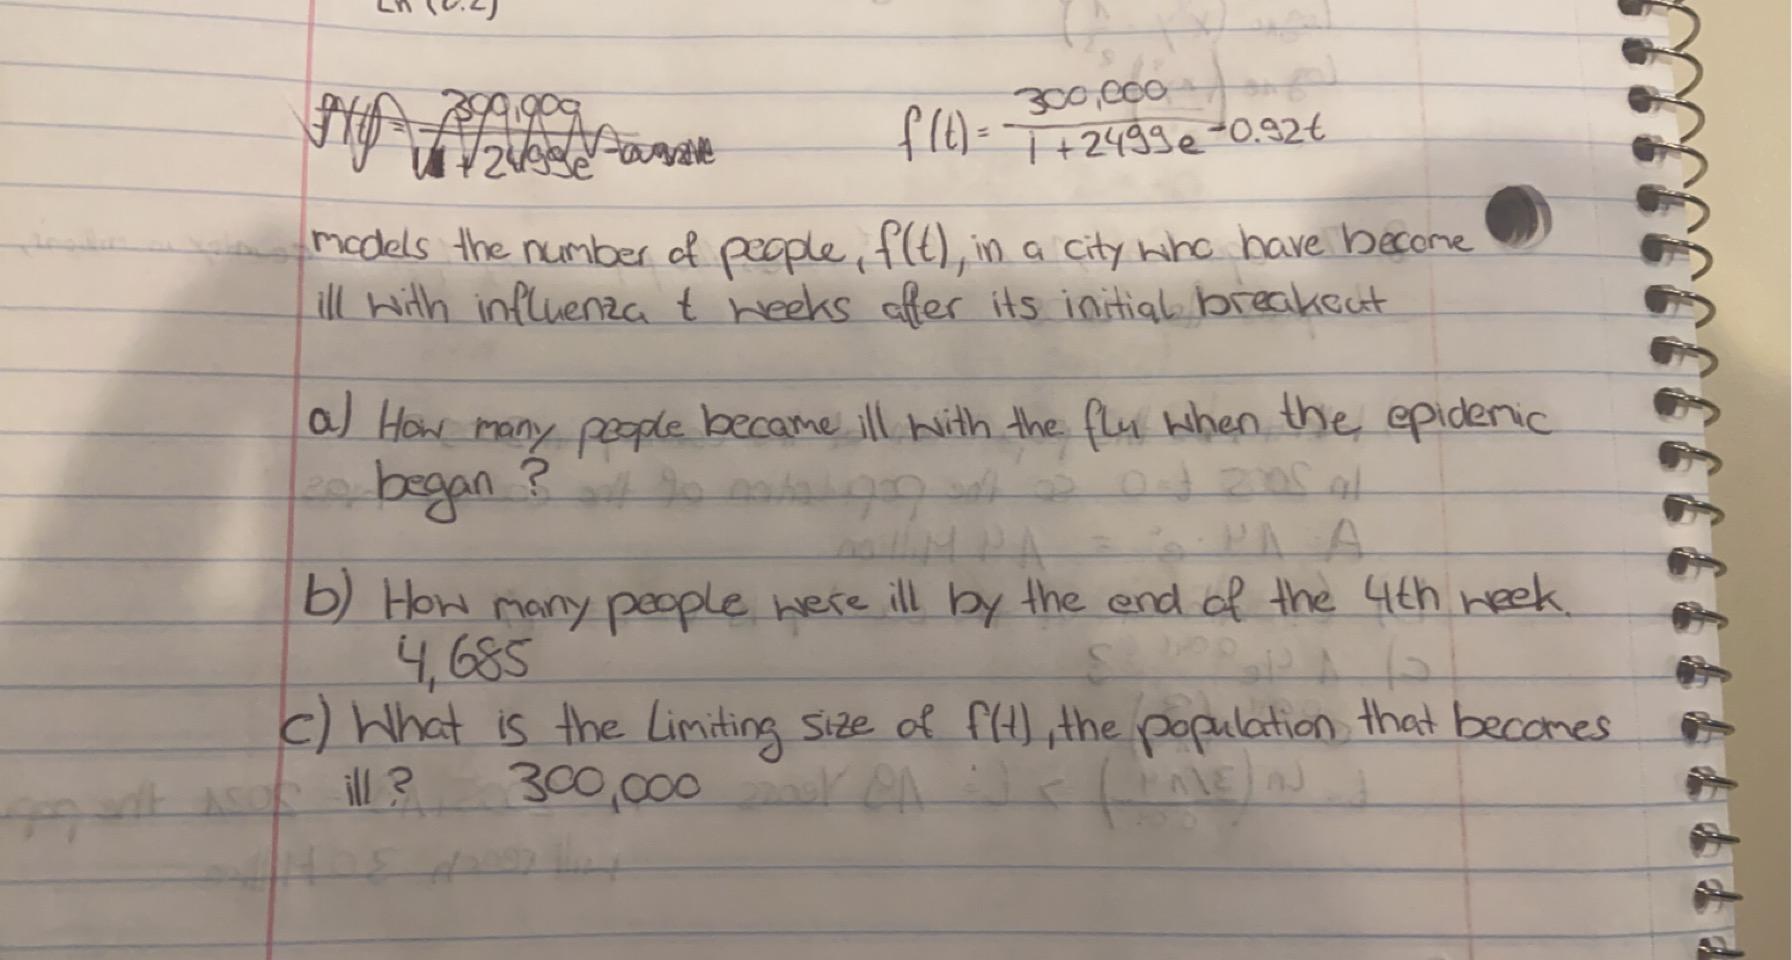 Ln (0.2)
f(t) = 300,000 / 1 + 2499e^-0.92t
models the number of people, f(t), in a city who have become
ill with influenza t weeks after its initial breakout
a) How many people became ill with the flu when the epidemic
began?
b) How many people were ill by the end of the 4th week.
4,685
c) What is the limiting size of f(t), the population that becomes
ill? 300,000